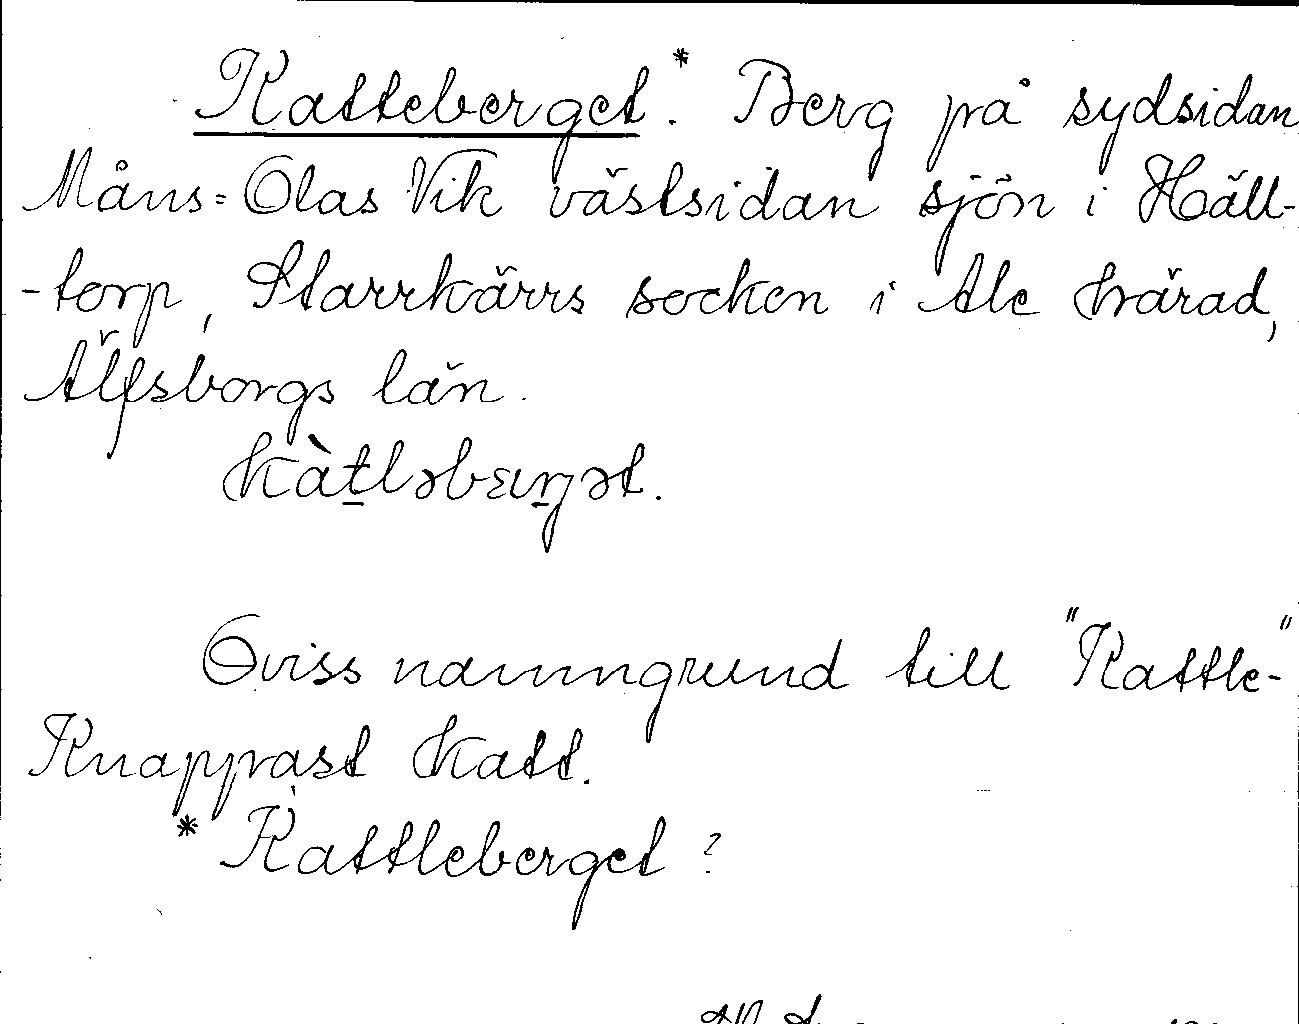 Katteberget.* Berg på sydsidan
Måns=Olas Vik västsidan sjön i Häll-
-torp, Starrkärrs socken i Ale härad,
Älfsborgs län.
kàt̲ləbæŋ̲ət.
Oviss namngrund till "Kattle-"
Knappast katt.
* Kattleberget ?